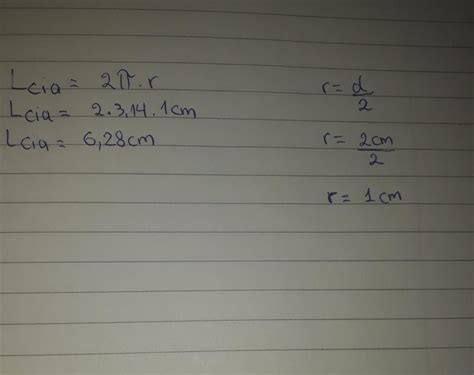 Lcia = 2π·r
Lcia = 2·3,14·1cm
Lcia = 6,28cm
r = d/2
r = 2cm/2
r = 1cm